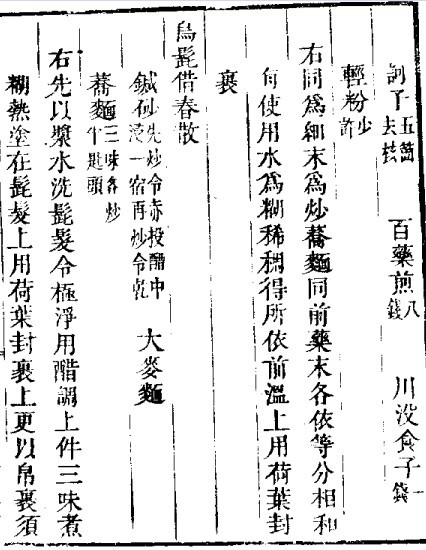 訶子五箇去核 百藥煎八錢 川沒食子一錢
輕粉少許
右同爲細末爲炒蕎麵同前藥末各依等分相和
旬使用水爲糊稀稠得所依前溫上用荷葉封
裹
烏髭借春散
鍼砂先炒令赤投醋中浸一宿再炒令乾 大麥麵
蕎麵三味各炒半匙頭
右先以漿水洗髭髮令極淨用醋調上件三味煮
糊熱塗在髭髮上用荷葉封裹上更以帛裹須